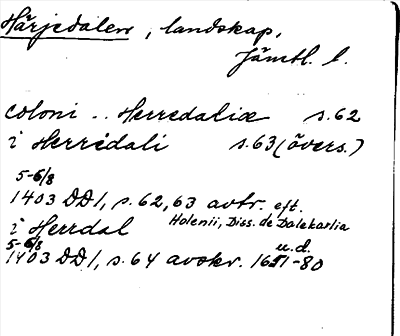 Härjedalen, landskap,
Jämtl. l.
coloni .. Herredaliæ s.62
i Herredali s.63 (övers.)
5-6/8
1403 DD1, s.62,63 avtr. eft.
Holenii, Diss. de Dalekarlia
i Herrdal u.d.
5-6/8
1403 DD1, s.64 avskr. 1651-80